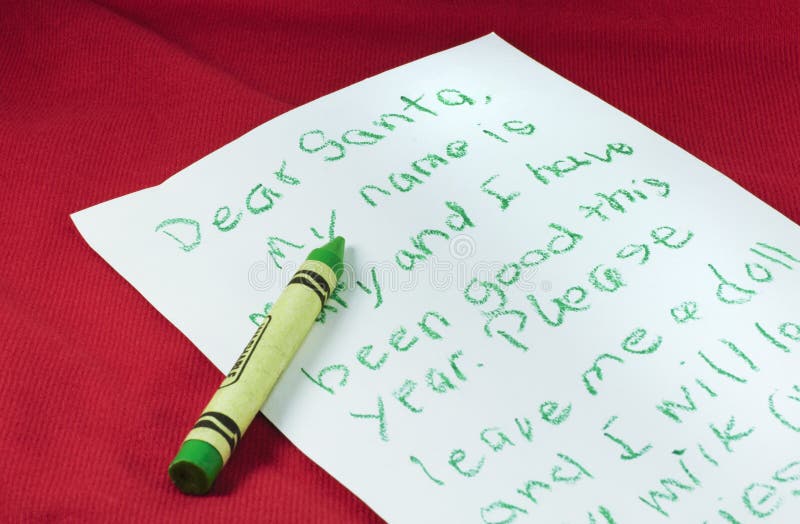 Dear Santa,
My name is
and I have
been good this
year. Please
leave me a doll
and I will le
milk
ies